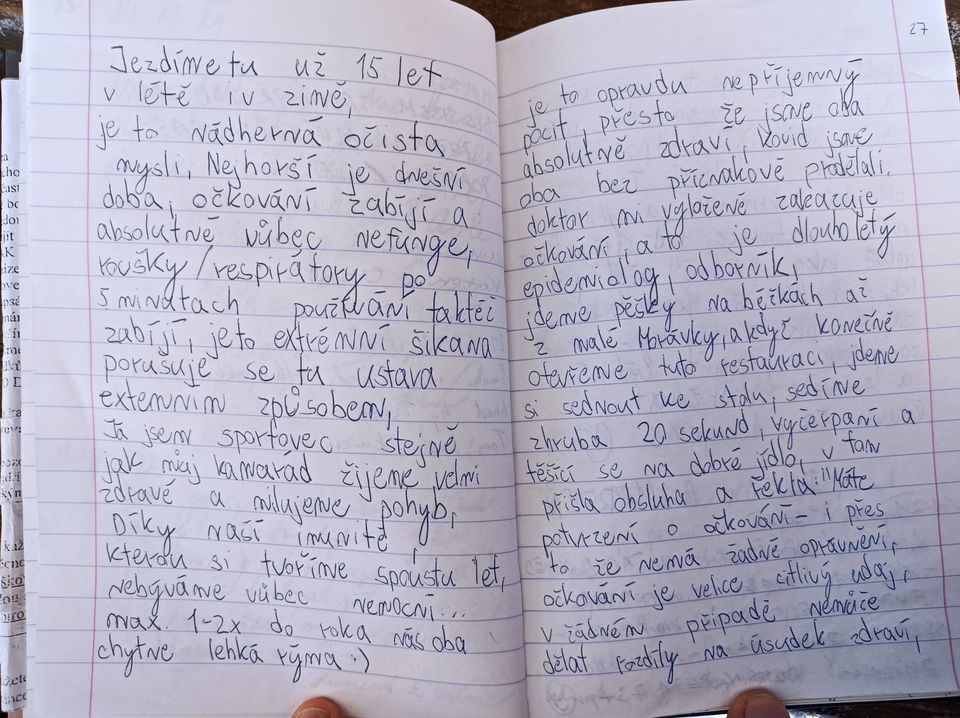 Jezdíme tu už 15 let
v létě i v zimě,
je to nádherná očista
mysli, Nejhorší je dnešní
doba, očkování zabíjí a
absolutně vůbec nefunge,
roušky/respirátory po
5 minutach používání taktéž
zabíjí, je to extrémní šikana
porušuje se tu ustava
extemním způsobem,
Já jsem sportovec stejně
jak můj kamarád žijeme velmi
zdravě a milujeme pohyb,
Díky naší imunitě,
kterou si tvoříme spoustu let,
nebýváme vůbec nemocní...
max. 1-2x do roka nás oba
chytne lehká rýma :)
27
je to opravdu nepříjemný
pocit, přesto že jsme oba
absolutně zdraví, kovid jsme
oba bez příznakově prodělali.
doktor mi vyloženě zakazuje
očkování, a to je dlouholetý
epidemialog, odborník,
jdeme pěšky na běžkách až
z malé Morávky, a když konečně
otevřeme tuto restauraci, jdeme
si sednout ke stolu, sedíme
zhruba 20 sekund, vyčerpaní a
těšící se na dobré jídlo, v tam
přišla obsluha a řekla: "Máte
potvrzení o očkování - i přes
to že nemá žádné oprávnění,
očkování je velice citlivý udaj,
v žádném případě nemůže
dělat rozdíly na úsudek zdraví,